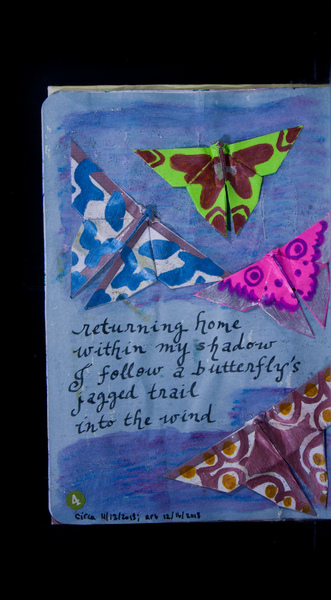 returning home
within my shadow
I follow a butterfly's
jagged trail
into the wind
4
circa 11/13/2013; art 12/16/2013